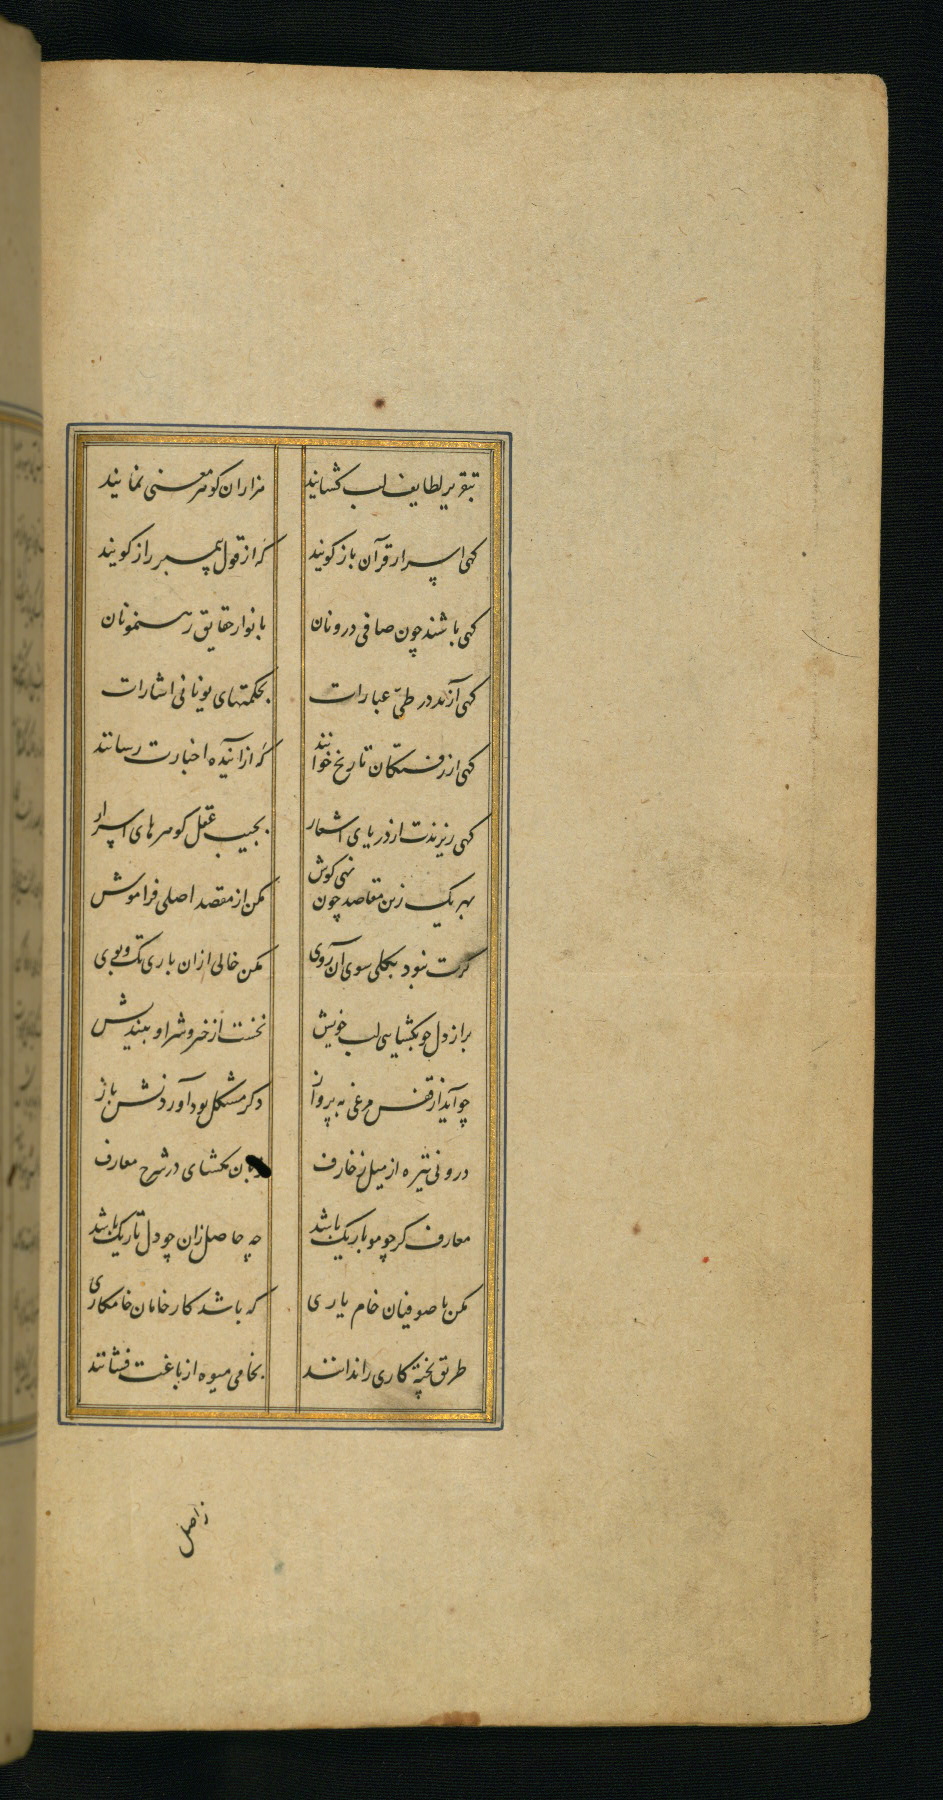 بتقریر لطایف لب کشایند هزاران کوهر معنی نمایند
کهی اسرار قرآن باز کویند که از قول پیمبر راز کویند
کهی باشند چون صافی درونان بانوار حقایق رهنمونان
کهی آرند در طیّ عبارات بحکمتهای یونانی اشارات
کهی از رفتکان تاریخ خوانند که از آینده اخبارت رسانند
کهی ریزندت از دریای اشعار بجیب عقل کوهرهای اسرار
بهر یک زین مقاصد چون نهی کوش مکن از مقصد اصلی فراموش
کرت نبود بکلی سوی آن روی مکن خالی ازان باری تک وپوی
براز دل چو بکشایی لب خویش نخست از خیر و شر او بیندیش
چو آید از قفس مرغی به پرواز دکر مشکل بود آوردنش باز
درونی تیره از میل زخارف زبان مکشای در شرح معارف
معارف کر چو مو باریک باشد چه حاصل زان چو دل تاریک باشد
مکن با صوفیان خام یاری که باشد کار خامان خامکاری
طریق پخته کاری را ندانند بخامی میوه از باغت فشانند
ز اصل